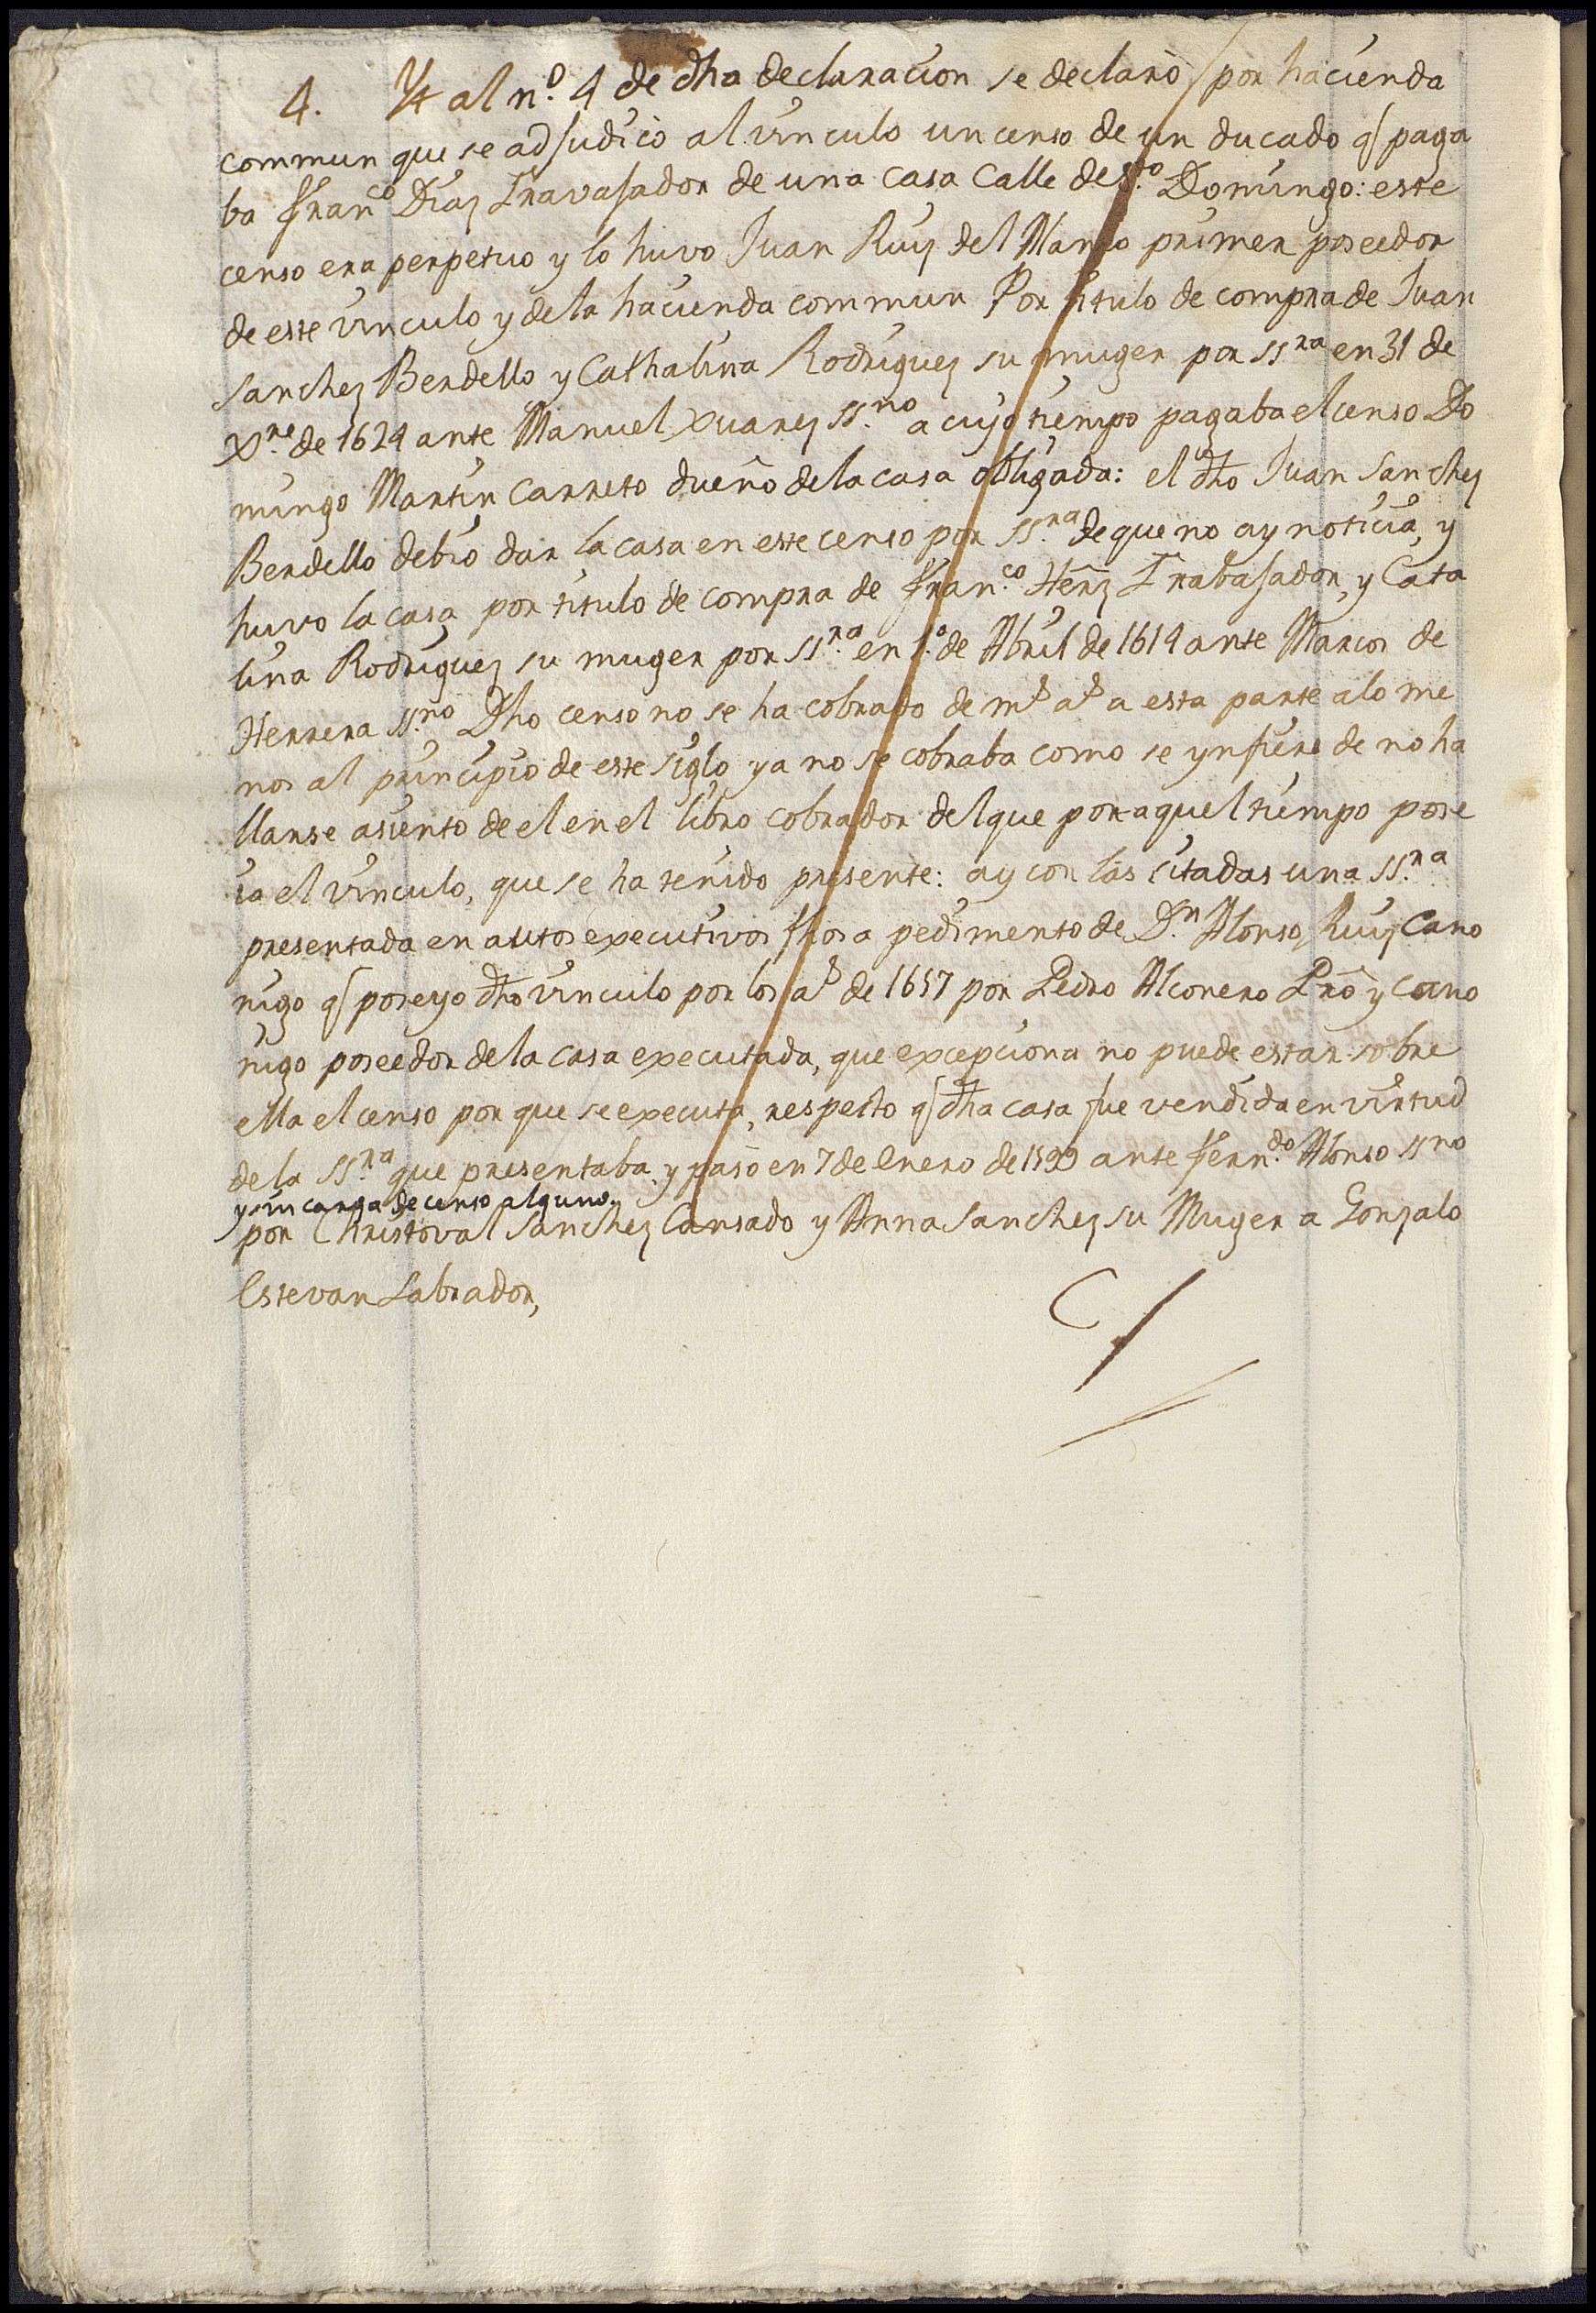 4. Yt al nº. 4 de dha declaracion se declarò por hacienda
commun que se adjudicò al vinculo un censo de un ducado q paga
ba Franco Diaz Travajador de una casa Calle de Sto. Domingo: este
censo era perpetuo y lo huvo Juan Ruiz del Manzo primer poseedor
de este vinculo y de la hacienda commun Por titulo de compra de Juan
Sanchez Berdello y Cathalina Rodriguez su muger por ssra en 31 de
Xre. de 1624 ante Manuel Xuarez ssno. a cuyo tiempo pagaba el censo Do
mingo Martin Carreto dueño de la casa obligada: el dho Juan Sanchez
Berdello debiò dar la casa en este censo por ssra. de que no ay noticia, y
huvo la casa por titulo de compra de Franco. Herñz Trabajador, y Cata
lina Rodriguez su muger por ssra. en 1º. de Abril de 1614 ante Marcos de
Herrera ssno. Dho censo no se ha cobrado de ms as a esta parte a lo me
nos al principio de este siglo ya no se cobraba como se ynfiere de no ha
llarse asiento de el en el libro cobrador del que por aquel tiempo pose
ia el vinculo, que se ha tenido presente: ay con las citadas una ssra.
presentada en autos executivos fhos a pedimento de Dn. Alonso Ruiz Cano
nigo q poseyo dho vinculo por los as de 1657 por Pedro Alconero Prõ y Cano
nigo poseedor de la casa executada, que excepciona no puede estar sobre
ella el censo por que se executa, respecto q dha casa fue vendida en virtud
de la ssra. que presentaba, y pasò en 7 de Enero de 1599 ante Ferndo. Alonso ssno
y sin carga de censo alguno.
por Christoval Sanchez Cansado y Anna Sanchez su Muger a Gonzalo
Estevan Labrador,